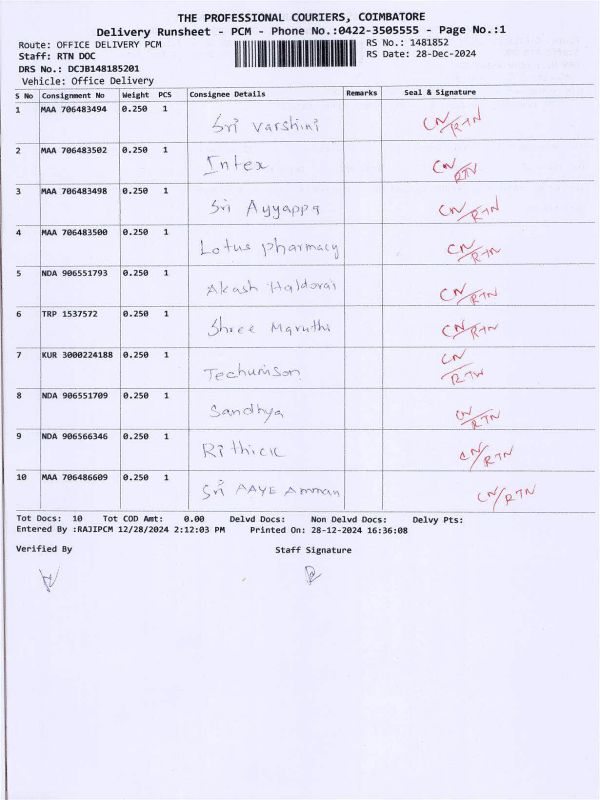 THE PROFESSIONAL COURIERS, COIMBATORE
Delivery Runsheet - PCM - Phone No.:0422-3505555 - Page No.:1
Route: OFFICE DELIVERY PCM RS No.: 1481852
Staff: RTN DOC RS Date: 28-Dec-2024
DRS No.: DCJB148185201
Vehicle: Office Delivery
S No Consignment No Weight PCS Consignee Details Remarks Seal & Signature
1 MAA 706483494 0.250 1 Sri Varshini CN/RTN
2 MAA 706483502 0.250 1 Intex CN/RTN
3 MAA 706483498 0.250 1 Sri Ayyappa CN/RTN
4 MAA 706483500 0.250 1 Lotus pharmacy CN/RTN
5 NDA 906551793 0.250 1 Akash Haldorai CN/RTN
6 TRP 1537572 0.250 1 Shree Maruthi CN/RTN
7 KUR 3000224188 0.250 1 Techunison CN/RTN
8 NDA 906551709 0.250 1 Sandhya CN/RTN
9 NDA 906566346 0.250 1 Rithick CN/RTN
10 MAA 706486609 0.250 1 Sri AAYE Amman CN/RTN
Tot Docs: 10 Tot COD Amt: 0.00 Delvd Docs: Non Delvd Docs: Delvy Pts:
Entered By :RAJIPCM 12/28/2024 2:12:03 PM Printed On: 28-12-2024 16:36:08
Verified By Staff Signature